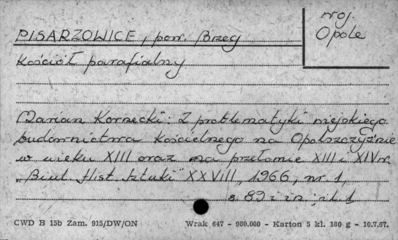 woj.
Opole
PISARZOWICE, pow. Brzeg
Kościół parafialny
Marian Kornecki: Z problematyki wiejskiego
budownictwa kościelnego na Opolszczyźnie
w wieku XIII oraz na przełomie XIII i XIV w.
"Biul. Hist. Sztuki" XXVIII, 1966, nr 1,
s. 89 i in.; il. 1
CWD B 15b Zam. 915/DW/ON Wrak 647 - 900.000 - Karton 5 kl. 180 g - 10.7.67.